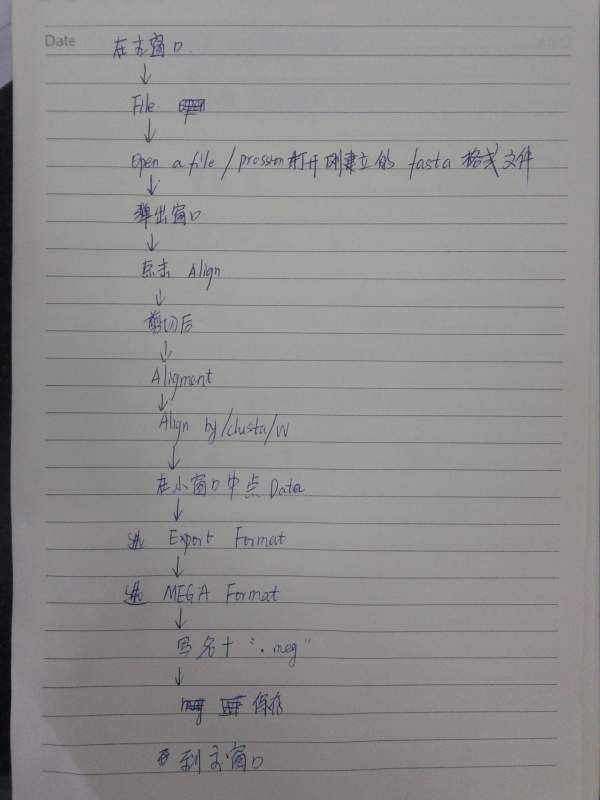 Date
在主窗口
↓
File.
↓
Open a file/prossion打开刚建立的 fasta 格式文件
↓
弹出窗口
↓
点击 Align
↓
剪切后
↓
Aligment
↓
Align by/clusta/W
↓
在小窗口中点 Data
↓
选 Export Format
↓
选 MEGA Format
↓
写名+“.meg”
↓
保存
到主窗口